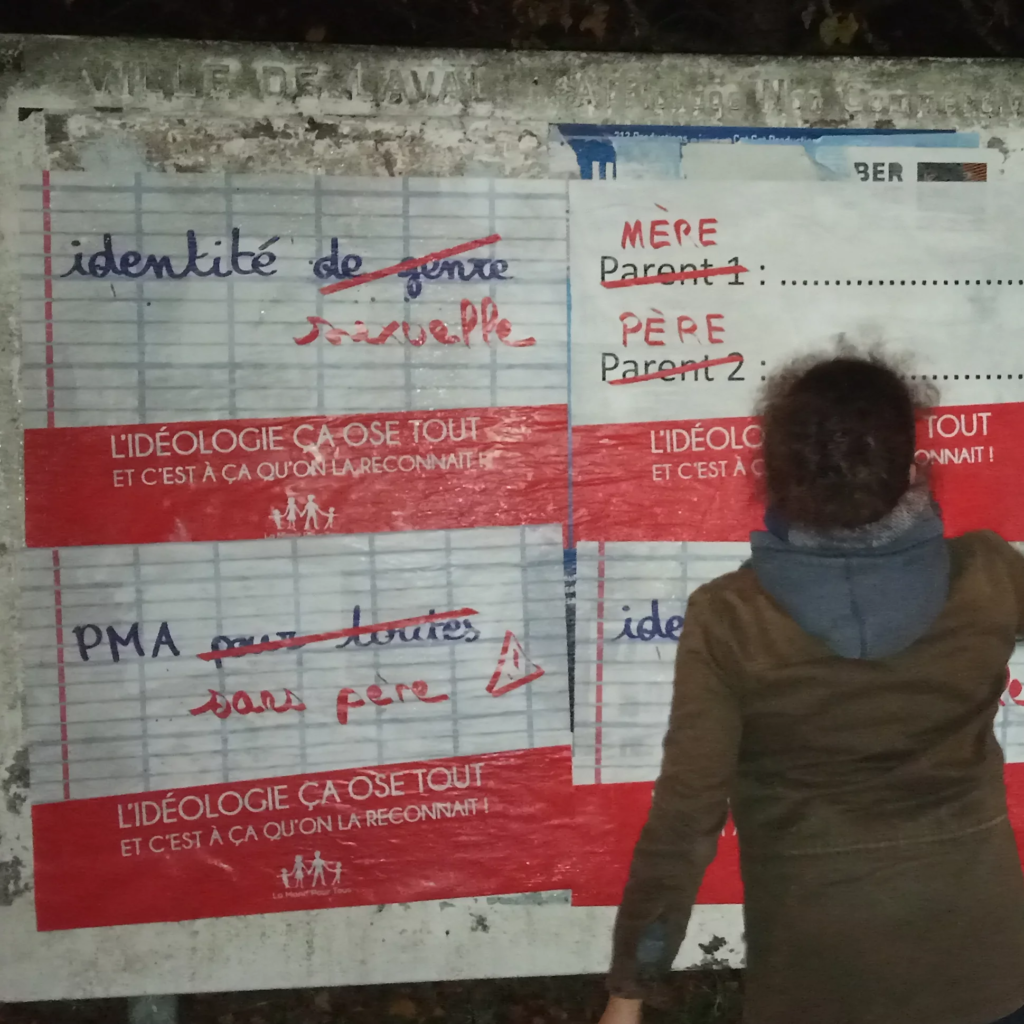 VILLE DE LAVAL
BER
identité de genre
sexuelle
L'IDÉOLOGIE ÇA OSE TOUT
ET C'EST À ÇA QU'ON LA RECONNAIT !
MÈRE
Parent 1 : 
PÈRE
Parent 2 : 
L'IDÉOLO TOUT
ET C'EST À Ç ONNAIT !
PMA pour toutes
sans père
L'IDÉOLOGIE ÇA OSE TOUT
ET C'EST À ÇA QU'ON LA RECONNAIT !
La Manif Pour Tous
ide